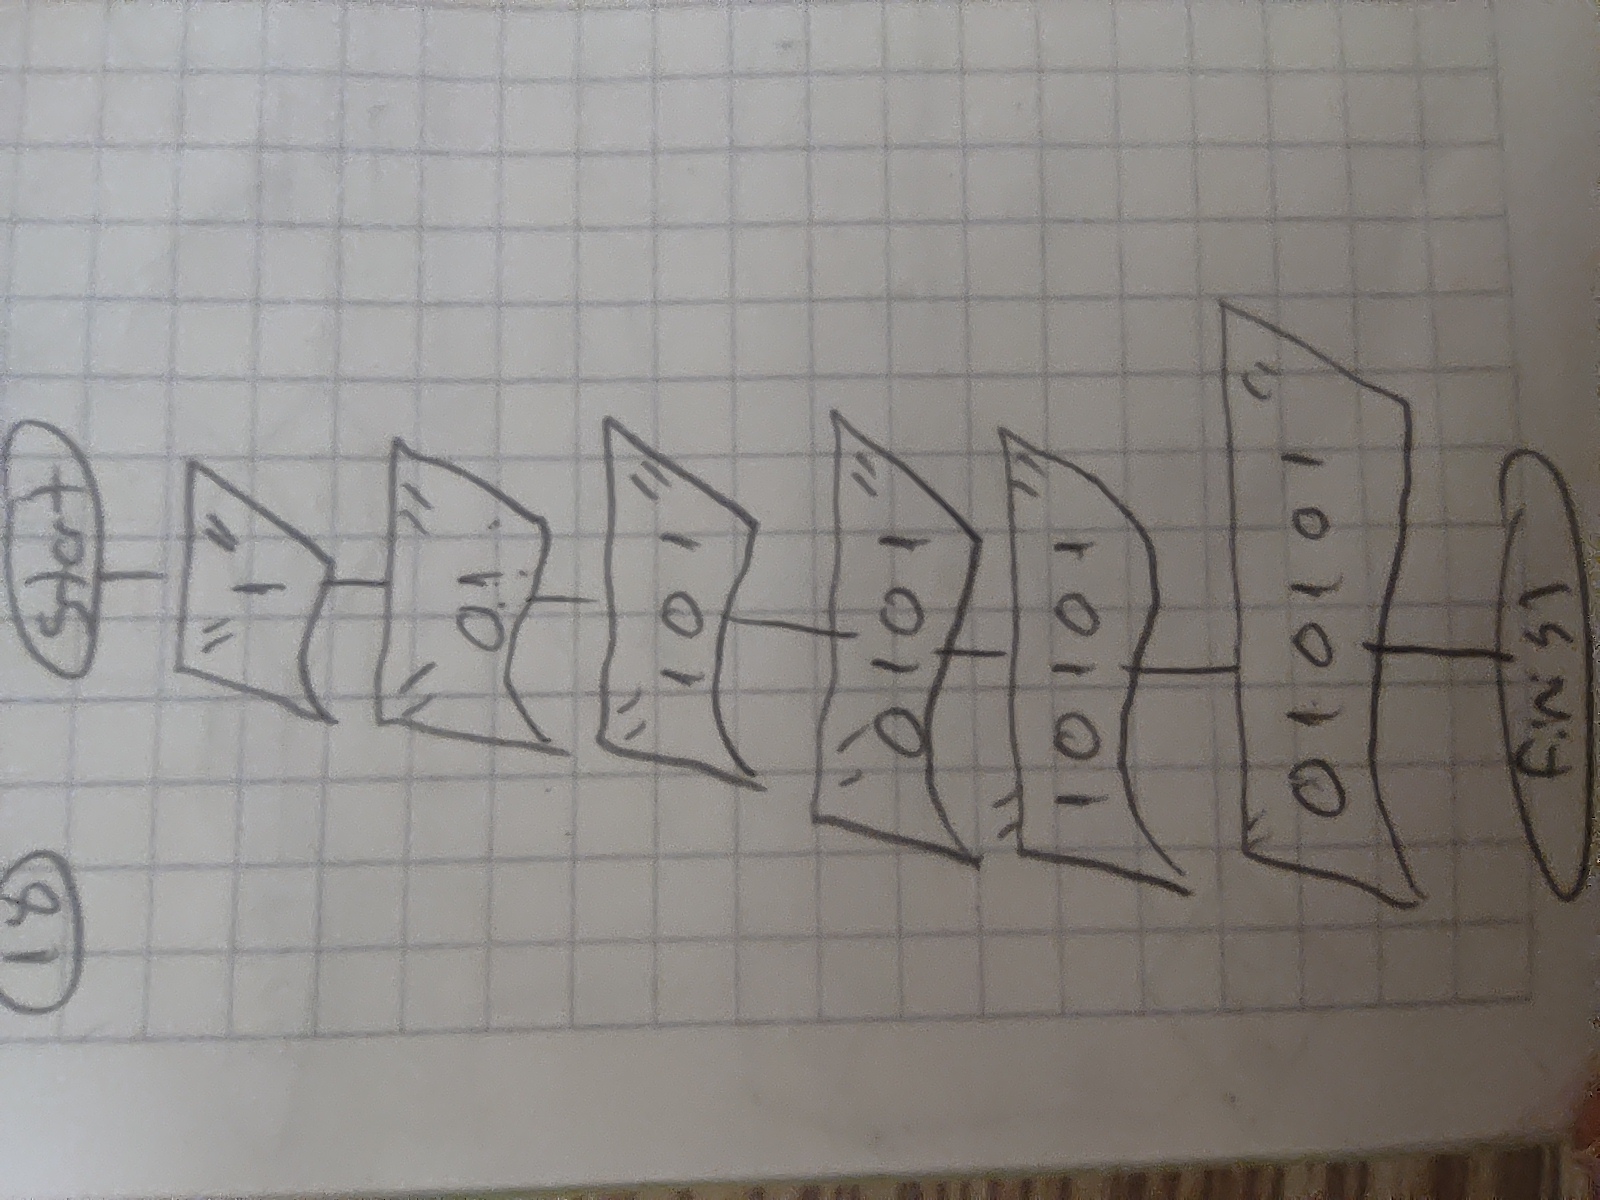 18
Start
" 1 "
" 01 "
" 101 "
" 0101 "
" 10101 "
" 010101 "
Finish